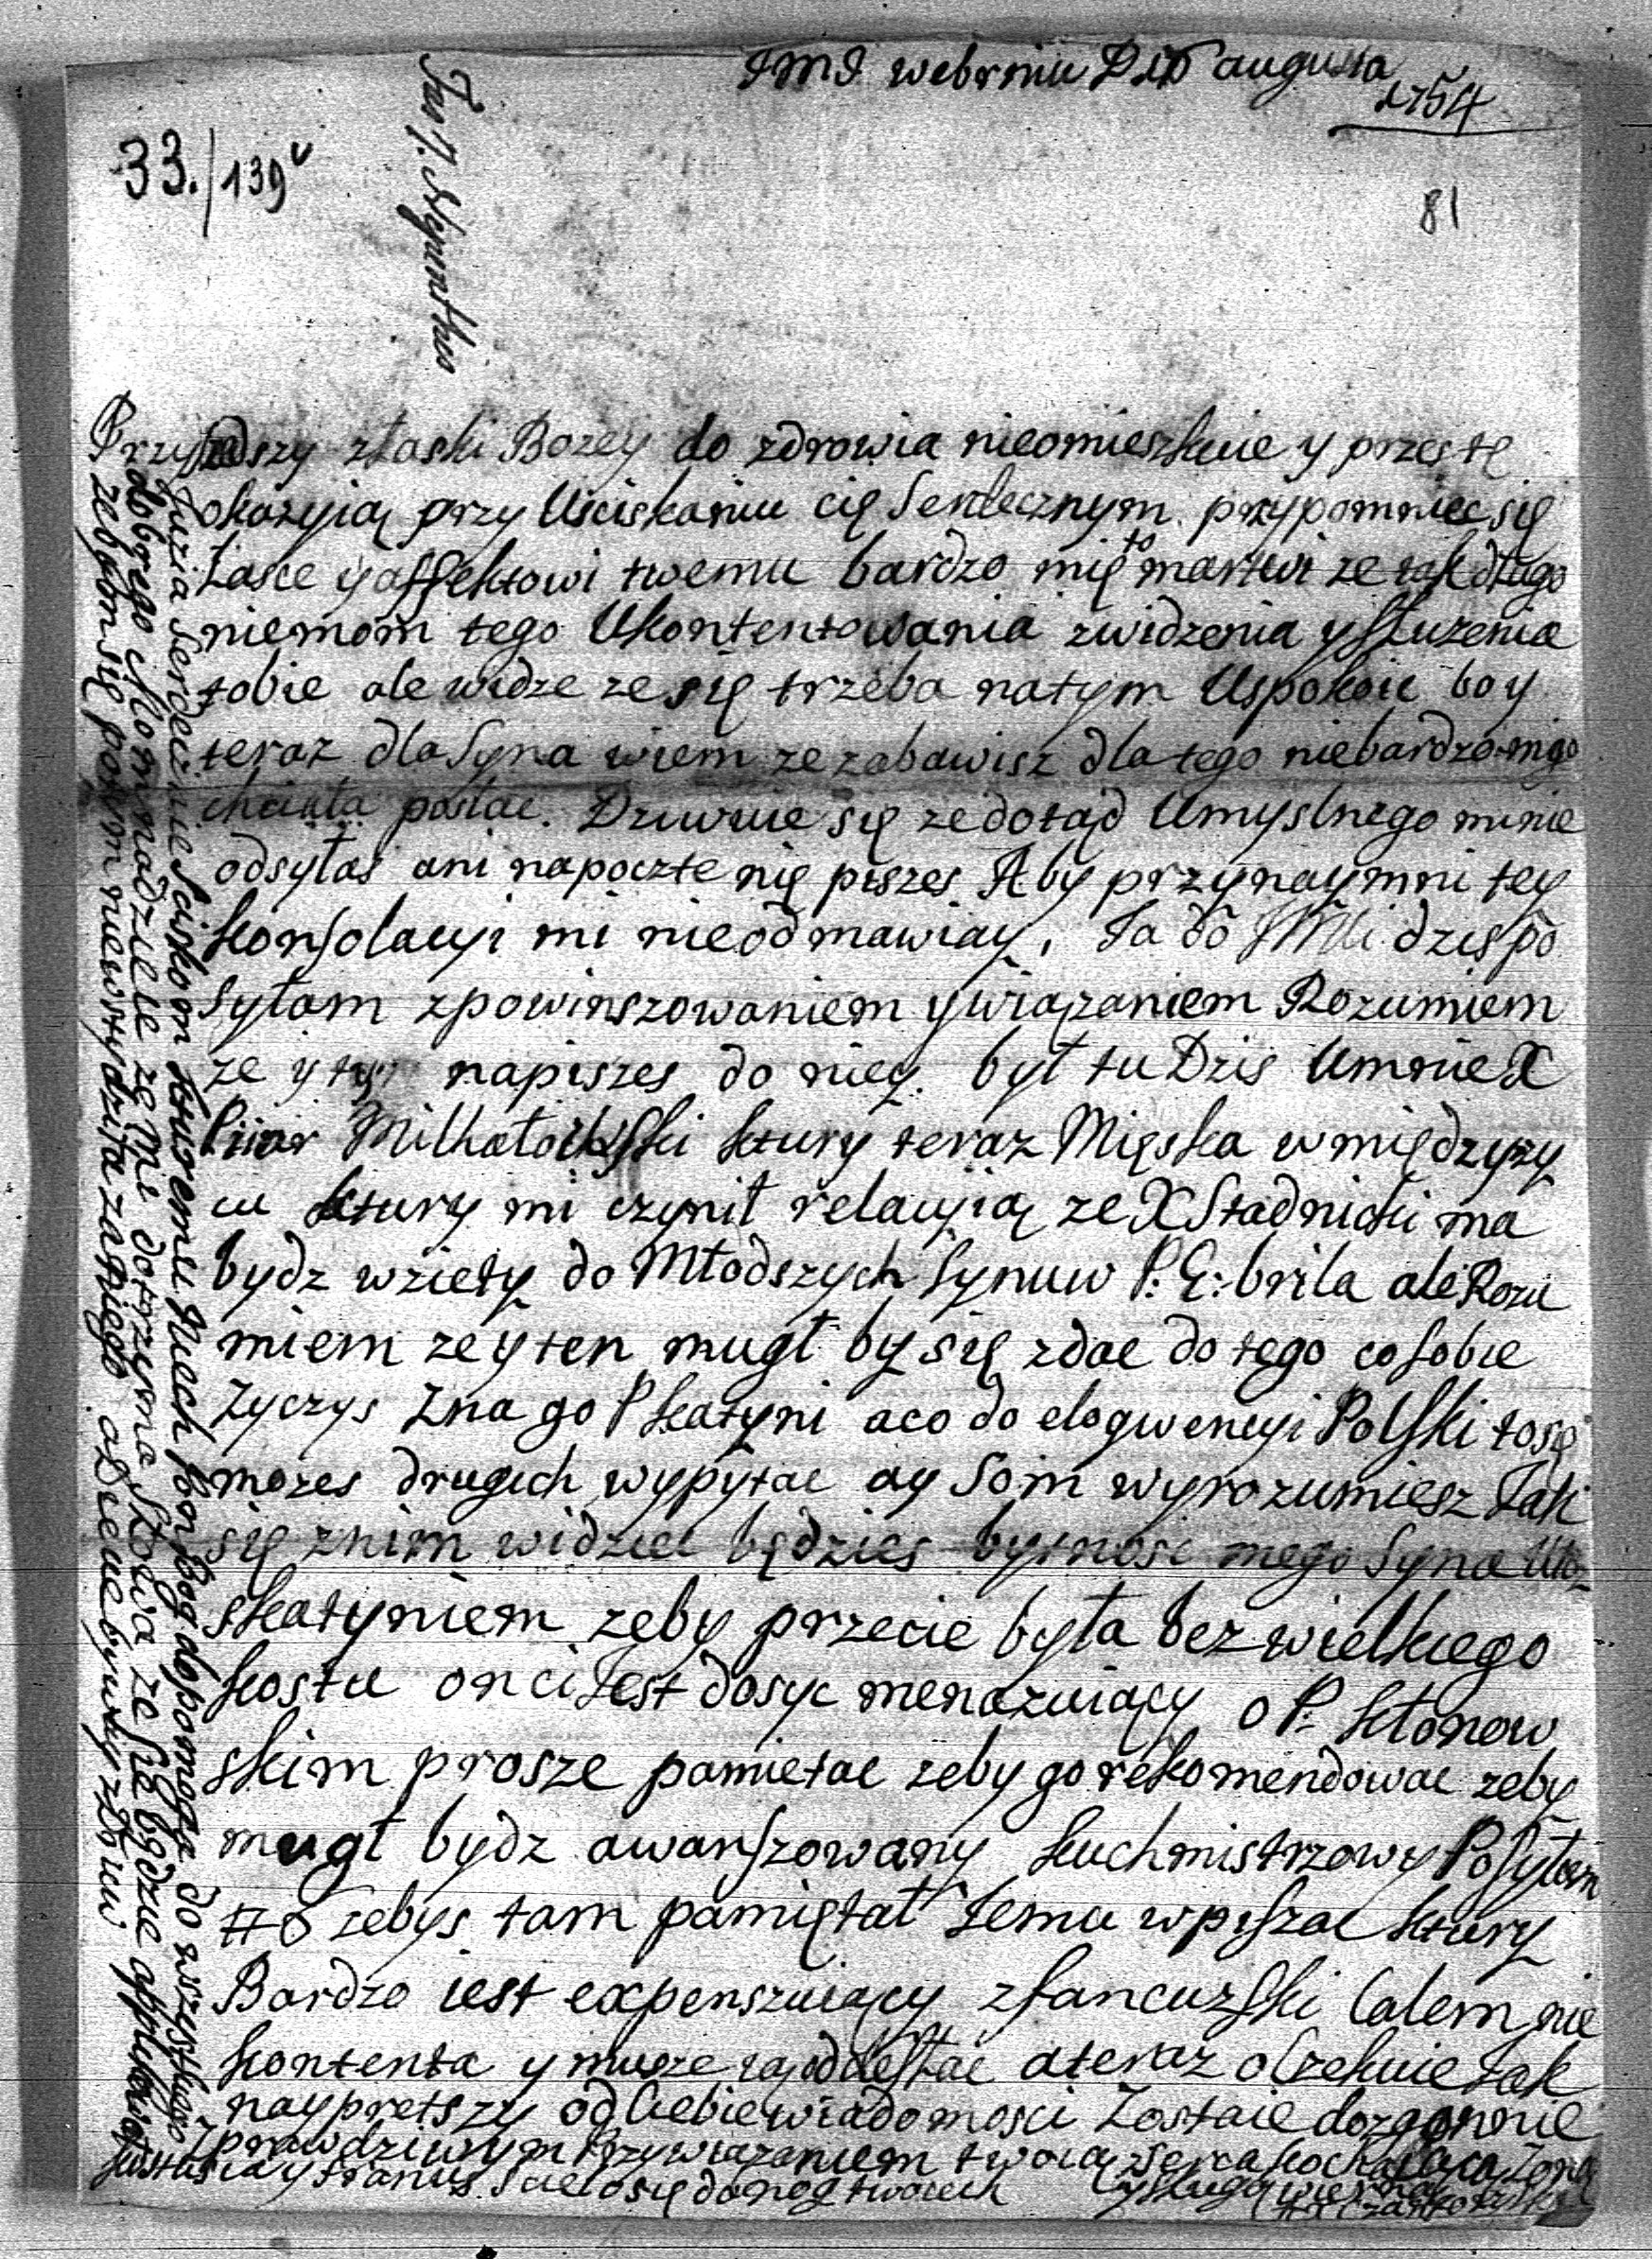 JMJ webrniu D 16 augusta
1754
33./139v
81
Przyszedszy złaski Bozey do zdrowia nieomieszkuie y przes tę
okazyią przy Usciskaniu cię Serdecznym przypomniec się
Łasce y affektowi twemu bardzo mię to martwi ze tak długo
niemom tego Ukontentowania zwidzenia y słuzenia
tobie ale widze ze się trzeba natym Uspokoic bo y
teraz dla Syna wiem ze zabawisz dla tego niebardzom go
chciała posłac. Dziwuie się ze dotąd Umyslnego mi nie
odsyłas ani napoczte nię piszes Aby przynaymni tey
konsolacyi mi nieodmawiay, Ja do JMci dzis po
syłam zpowinszowaniem y wiązaniem Rozumiem
ze y ty napiszes do niey. był tu Dzis Umnie X
Piiar ktury teraz Mięska wmiędzyrzy
cu ktury mi czynił relacyią ze X Stadnicki ma
bydz wziety do Młodszych Synuw P: G: brila ale Rozu
miem ze y ten mugł by się zdac do tego co sobie
Zyczys Zna go P katyni aco do elogwencyi Polski to się
mozes drugich wypytac ay Som wyrozumiesz Jak
się znim widziec będzies bytnosc mego Syna Uto
skatyniem zeby przecie była bez wielkiego
kostu on ci Jest dosyc menazuiący o P: kłonow
skim prosze pamietac zeby go rekomendowac zeby
mugł bydz awanszowany kuchmistrzowy Posyłam
# 6 zebys tam pamiętał Jemu wpisac ktury
Bardzo iest expenszuiący zfancuzski Calem nie
kontenta y musze go oddestac a teraz oczekuie Jak
naypretszy od Ciebie wiadomosci Zostaie dozgonnie
Zprawdziwym Przywiązaniem twoią zserca kochaiąca Zoną
y sługą wierną
Justusia y Franus Scielo się donog twoiech
Juzia Serdecznie Sciskom kturemu niech pan bog dopomoze do wszystkiego
dobrego Mom nadzieie ze mi dotrzyma Słowa ze się będzie applikował
zebym się potym niewstydziła zaniego